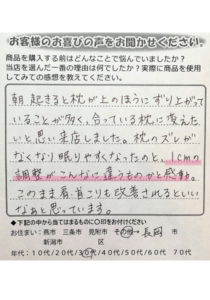 お客様のお喜びの声をお聞かせください。
商品を購入する前はどんなことで悩んでいましたか?
当店を選んだ一番の理由は何でしたか?実際に商品を使用
してみての感想を教えてください。
朝起きると枕が上のほうにずり上がって
いることが多く、合っている枕に変えた
いと思い来店しました。枕のズレが
なくなり眠りやすくなったのと、1cmの
調整がこんなに違うものかと感動。
このまま肩、首こりも改善されるといい
なぁと思っています。
◆下記の中から当てはまるものに○印をお付けください
お住まい:燕市 三条市 見附市 その他→長岡 市
新潟市 区
年代:10代/20代/30代/40代/50代/60代 70代